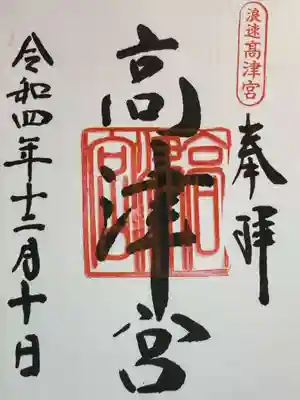 浪速高津宮
奉拝
高津宮
令和四年十二月十日